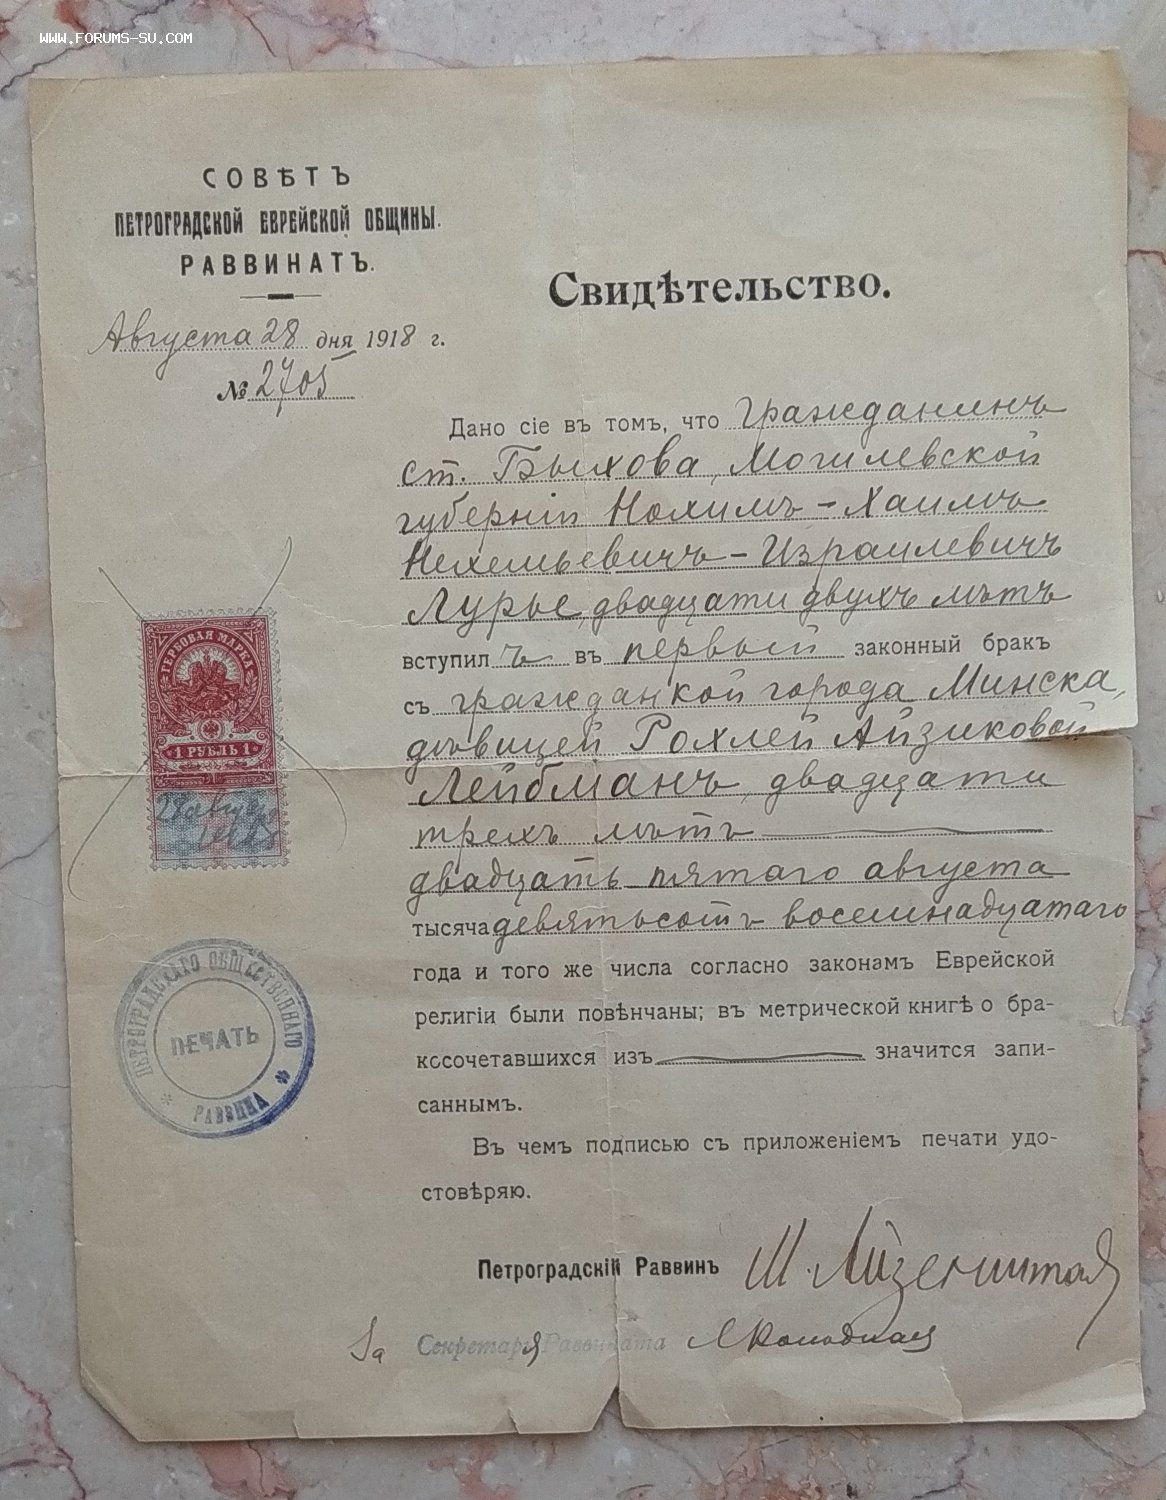 WWW.FORUMS-SU.COM
СОВѢТЪ
ПЕТРОГРАДСКОЙ ЕВРЕЙСКОЙ ОБЩИНЫ.
РАВВИНАТЪ.
Августа 28 дня 1918 г.
№ 2705
Свидѣтельство.
Дано сіе въ томъ, что гражданинъ
ст. Быхова, Могилевской
губерніи Нохимъ-Хаимъ
Нехемьевичъ-Израилевичъ
Лурье, двадцати двухъ лѣтъ
вступилъ въ первый законный бракъ
съ гражданкой города Минска,
дѣвицей Рохлей Айзиковой
Лейбманъ, двадцати
трехъ лѣтъ
двадцать пятаго августа
тысяча девятьсотъ восемнадцатаго
года и того же числа согласно законамъ Еврейской
религіи были повѣнчаны; въ метрической книгѣ о бра-
ксосочетавшихся изъ значится запи-
саннымъ.
Въ чемъ подписью съ приложеніемъ печати удо-
стовѣряю.
ГЕРБОВАЯ МАРКА
1 РУБЛЬ 1
28 августа
1918
ПЕТРОГРАДСКАГО ОБЩЕСТВЕННАГО
ПЕЧАТЬ
РАВВИНА
Петроградскій Раввинъ М. Айзенштадт
За Секретаря Раввината